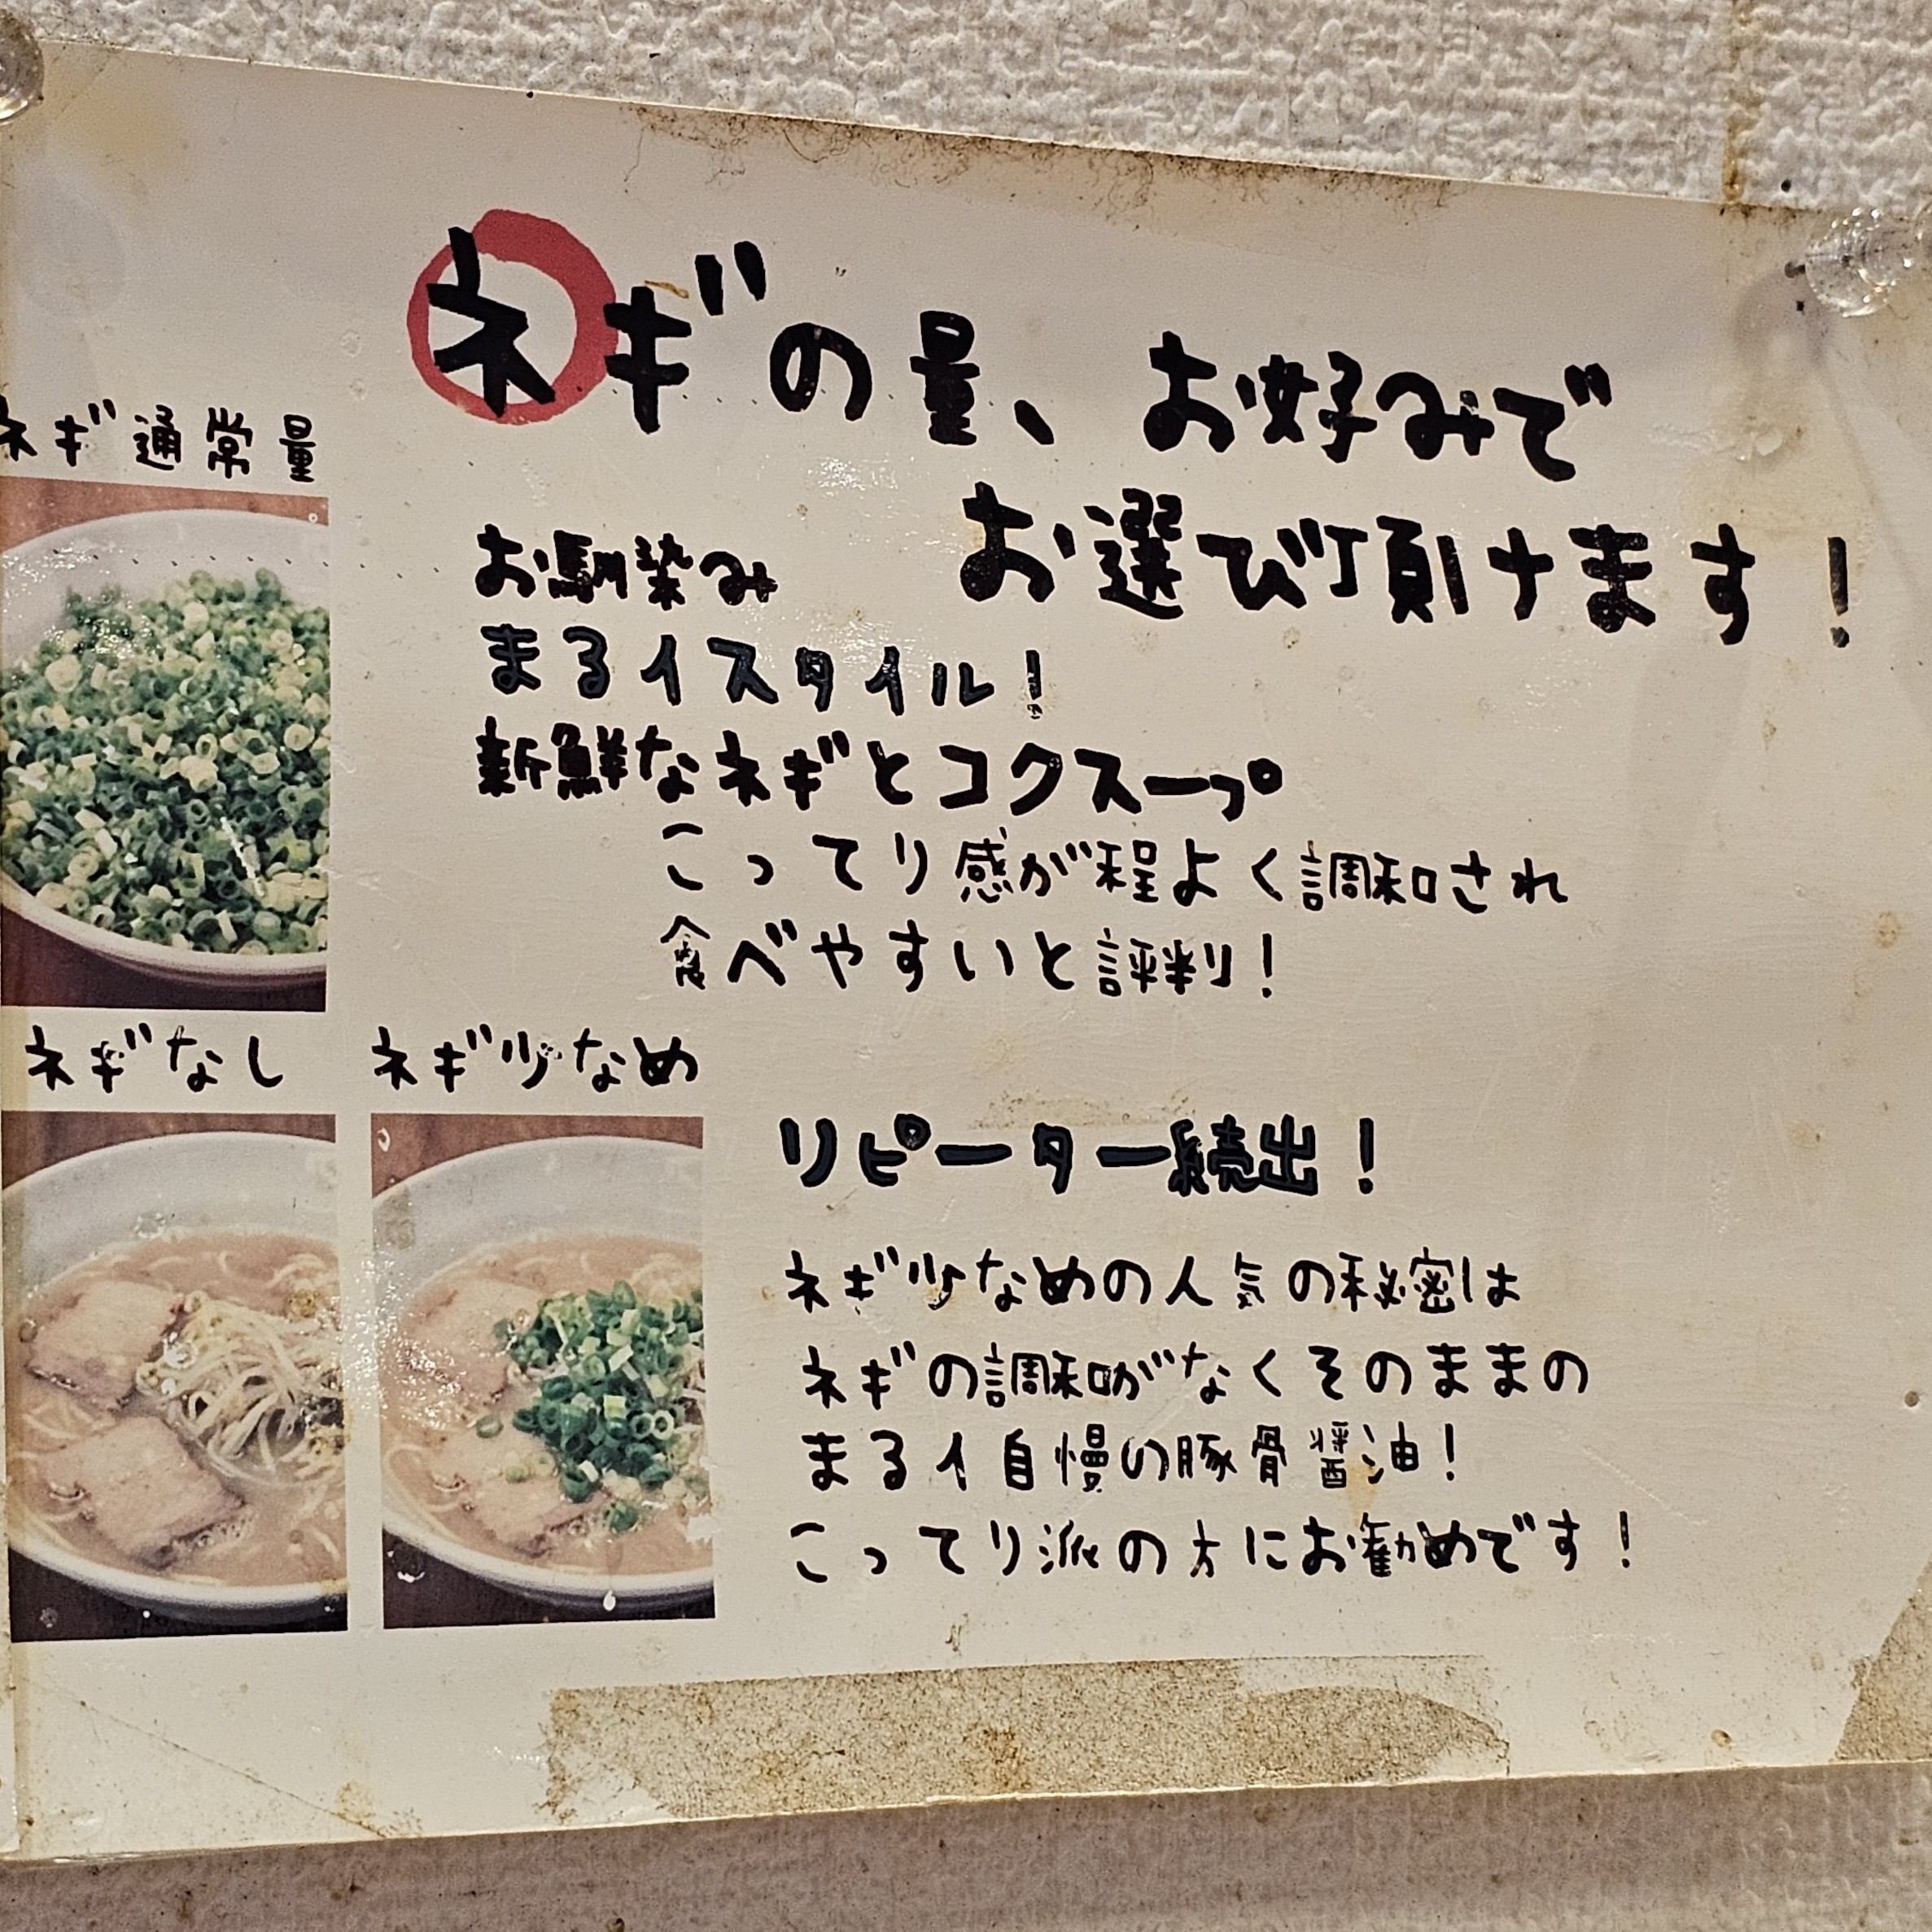 ネギの量、お好みで
お選び頂けます！
ネギ通常量
お馴染み
まるイスタイル！
新鮮なネギとコクスープ
こってり感が程よく調和され
食べやすいと評判！
ネギなし
ネギ少なめ
リピーター続出！
ネギ少なめの人気の秘密は
ネギの調和がなくそのままの
まるイ自慢の豚骨醤油！
こってり派の方にお勧めです！